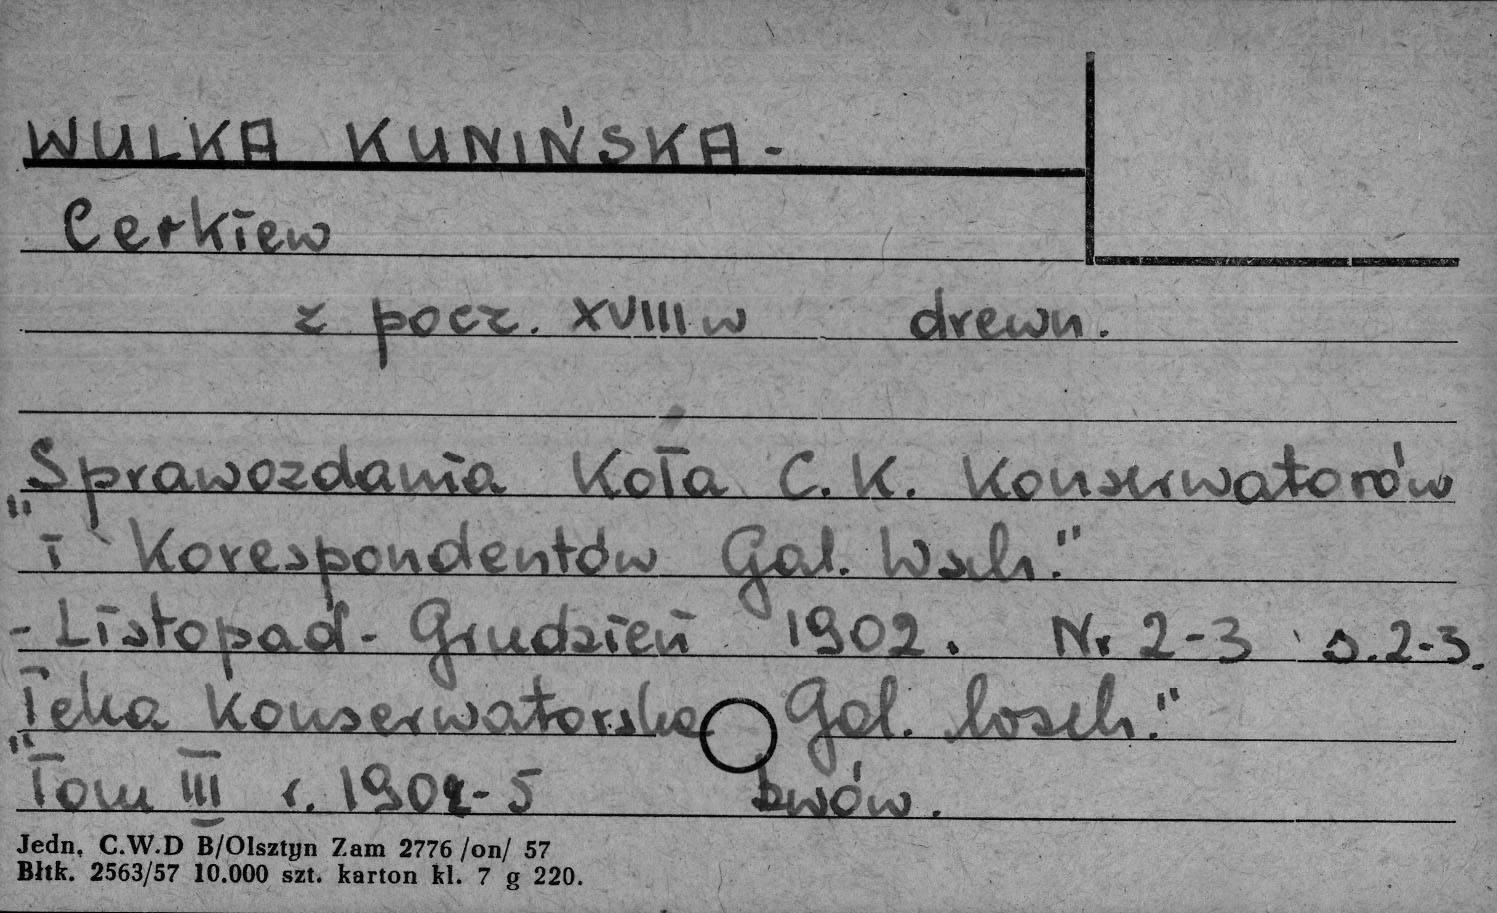 WULKA KUNIŃSKA -
Cerkiew
z pocz. XVIII w drewn.
Sprawozdania Koła C.K. Konserwatorów
" i Korespondentów Gal. Wsch."
- Listopad - Grudzień 1902. Nr 2-3 s. 2-3.
"Teka Konserwatorska Gal. Wsch."
Tom III r. 1902-5 Lwów.
Jedn. C.W.D B/Olsztyn Zam 2776 /on/ 57
Błtk. 2563/57 10.000 szt. karton kl. 7 g 220.